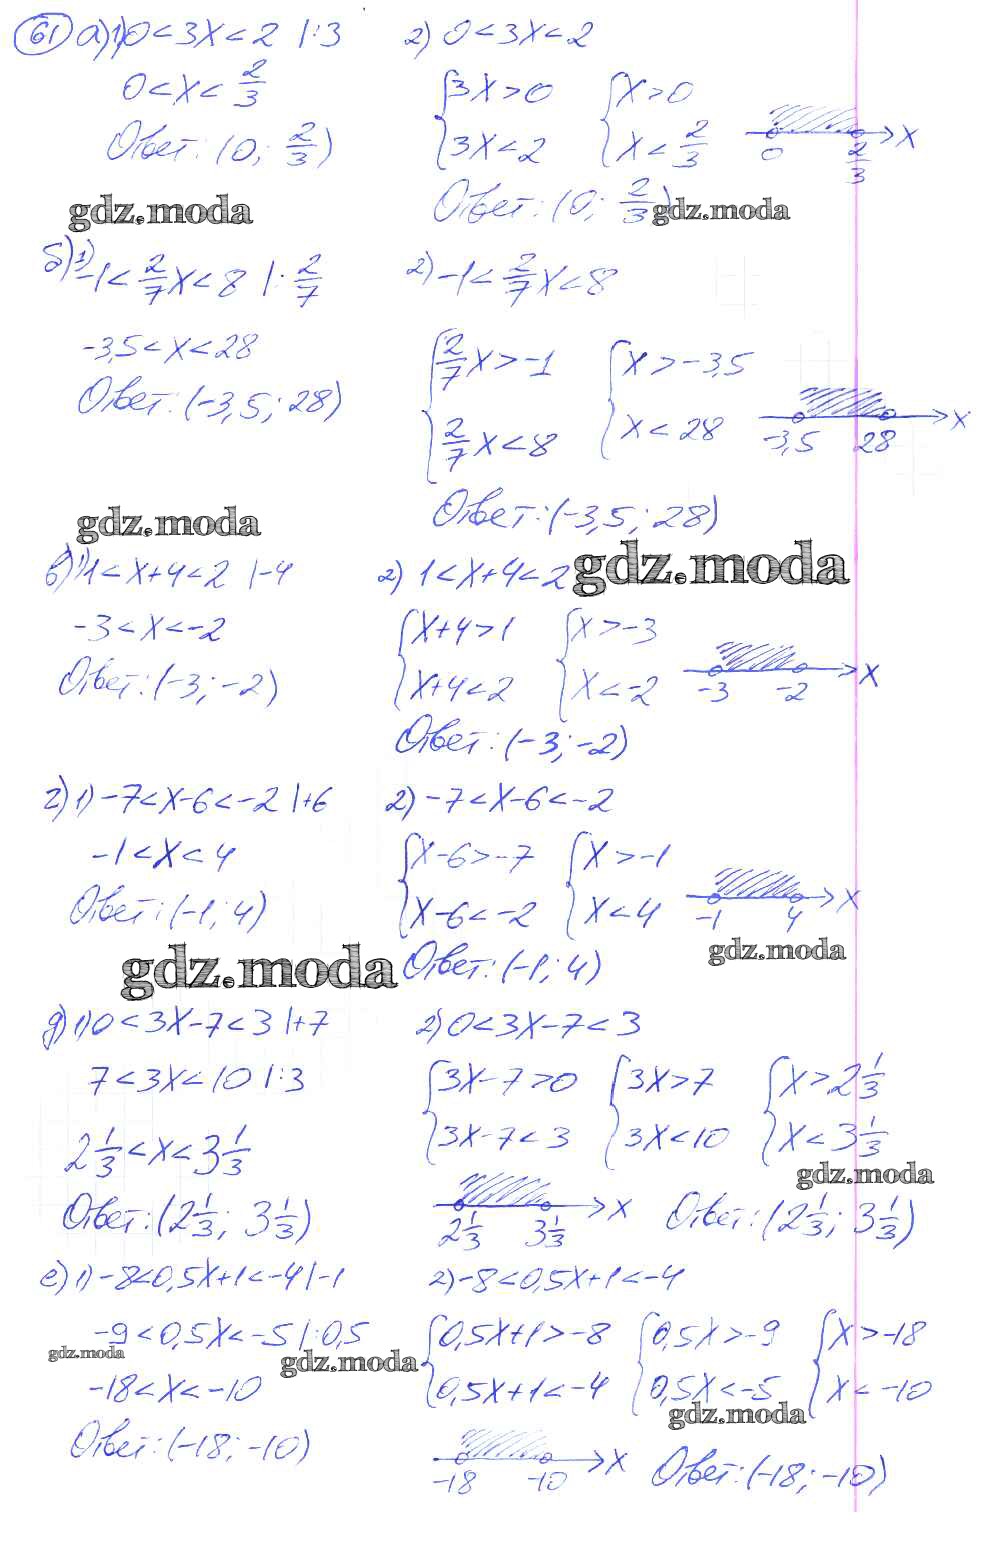 61 а) 1) 0 < 3x < 2 |:3
0 < x < 2/3
Ответ: (0; 2/3)
2) 0 < 3x < 2
{3x > 0 {x > 0
{3x < 2 {x < 2/3
0 2/3 x
Ответ: (0; 2/3)
gdz.moda gdz.moda
б) 1) -1 < 2/7 x < 8 |: 2/7
-3,5 < x < 28
Ответ: (-3,5; 28)
2) -1 < 2/7 x < 8
{2/7 x > -1 {x > -3,5
{2/7 x < 8 {x < 28
-3,5 28 x
Ответ: (-3,5; 28)
gdz.moda
в) 1) 1 < x+4 < 2 |-4
-3 < x < -2
Ответ: (-3; -2)
2) 1 < x+4 < 2
gdz.moda
{x+4 > 1 {x > -3
{x+4 < 2 {x < -2
-3 -2 x
Ответ: (-3; -2)
г) 1) -7 < x-6 < -2 |+6
-1 < x < 4
Ответ: (-1; 4)
2) -7 < x-6 < -2
{x-6 > -7 {x > -1
{x-6 < -2 {x < 4
-1 4 x
Ответ: (-1; 4)
gdz.moda gdz.moda
д) 1) 0 < 3x-7 < 3 |+7
7 < 3x < 10 |:3
2 1/3 < x < 3 1/3
Ответ: (2 1/3; 3 1/3)
2) 0 < 3x-7 < 3
{3x-7 > 0 {3x > 7 {x > 2 1/3
{3x-7 < 3 {3x < 10 {x < 3 1/3
gdz.moda
2 1/3 3 1/3 x
Ответ: (2 1/3; 3 1/3)
е) 1) -8 < 0,5x+1 < -4 |-1
-9 < 0,5x < -5 |:0,5
-18 < x < -10
Ответ: (-18; -10)
2) -8 < 0,5x+1 < -4
{0,5x+1 > -8 {0,5x > -9 {x > -18
{0,5x+1 < -4 {0,5x < -5 {x < -10
gdz.moda gdz.moda gdz.moda
-18 -10 x
Ответ: (-18; -10)